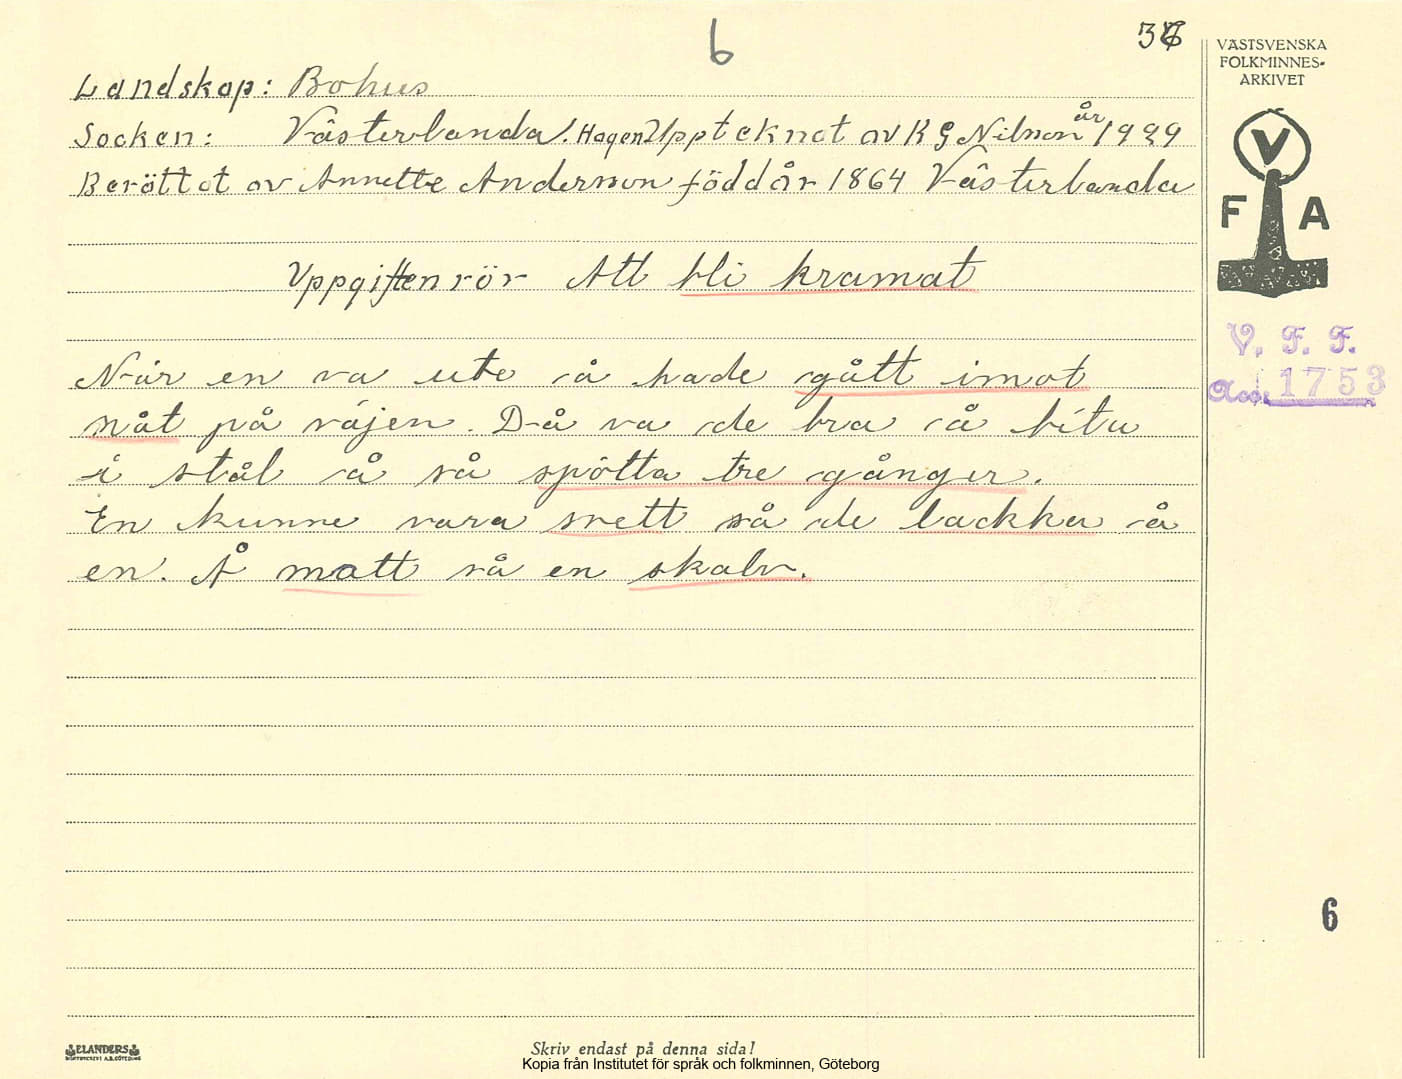 6
36
VÄSTSVENSKA
FOLKMINNES-
ARKIVET
V
F A
V. F. F.
Acc. 1753
Landskap: Bohus
Socken: Västerlanda. Hagen Upptecknat av K G Nilson år 1929
Berättat av Annette Anderson född år 1864 Västerlanda
Uppgiften rör Att bli kramat
När en va ute å hade gått imot
nåt på väjen. Då va de bra å bita
i stål å så spötta tre gånger.
En kunne vara svett så de lackka å
en. Å matt så en skalv.
6
ELANDERS
Skriv endast på denna sida!
Kopia från Institutet för språk och folkminnen, Göteborg